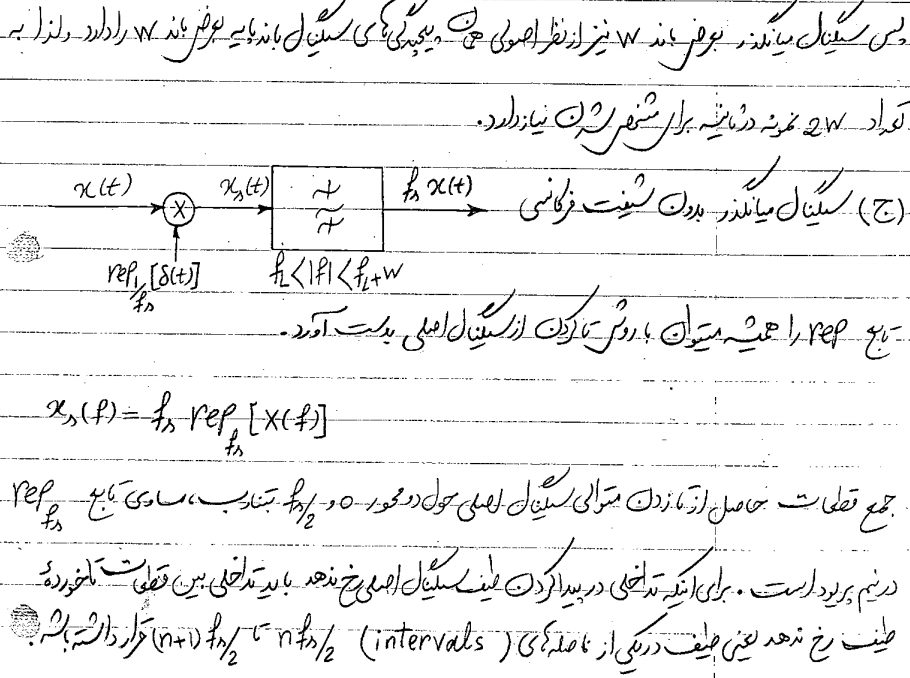 پس سیگنال میانگذر بعرض باند W نیز از نظر اصولی همان پیچیدگی‌های سیگنال باند پایه بعرض باند W را دارد ولذا به
تعداد 2W نمونه در ثانیه برای مشخص شدن نیاز دارد.
(ج) سیگنال میانگذر بدون شیفت فرکانسی
x(t) × xₛ(t) fₛ x(t)
rep 1/fₛ [δ(t)] f_L<|f|<f_L+W
تابع rep را همیشه میتوان با روش تا کردن از سیگنال اصلی بدست آورد.
xₛ(f) = fₛ rep fₛ [X(f)]
جمع قطعات حاصل از تا زدن متوالی سیگنال اصلی حول دو محور 0 و fₛ/2 تناوب، مساوی تابع rep fₛ
در نیم پریود است. برای اینکه تداخلی در پیدا کردن طیف سیگنال اصلی رخ ندهد باید تداخلی بین قطعات تا خوردهٔ
طیف رخ ندهد یعنی طیف در یکی از فاصله‌های (intervals) nfₛ/2 تا (n+1)fₛ/2 قرار داشته باشد.